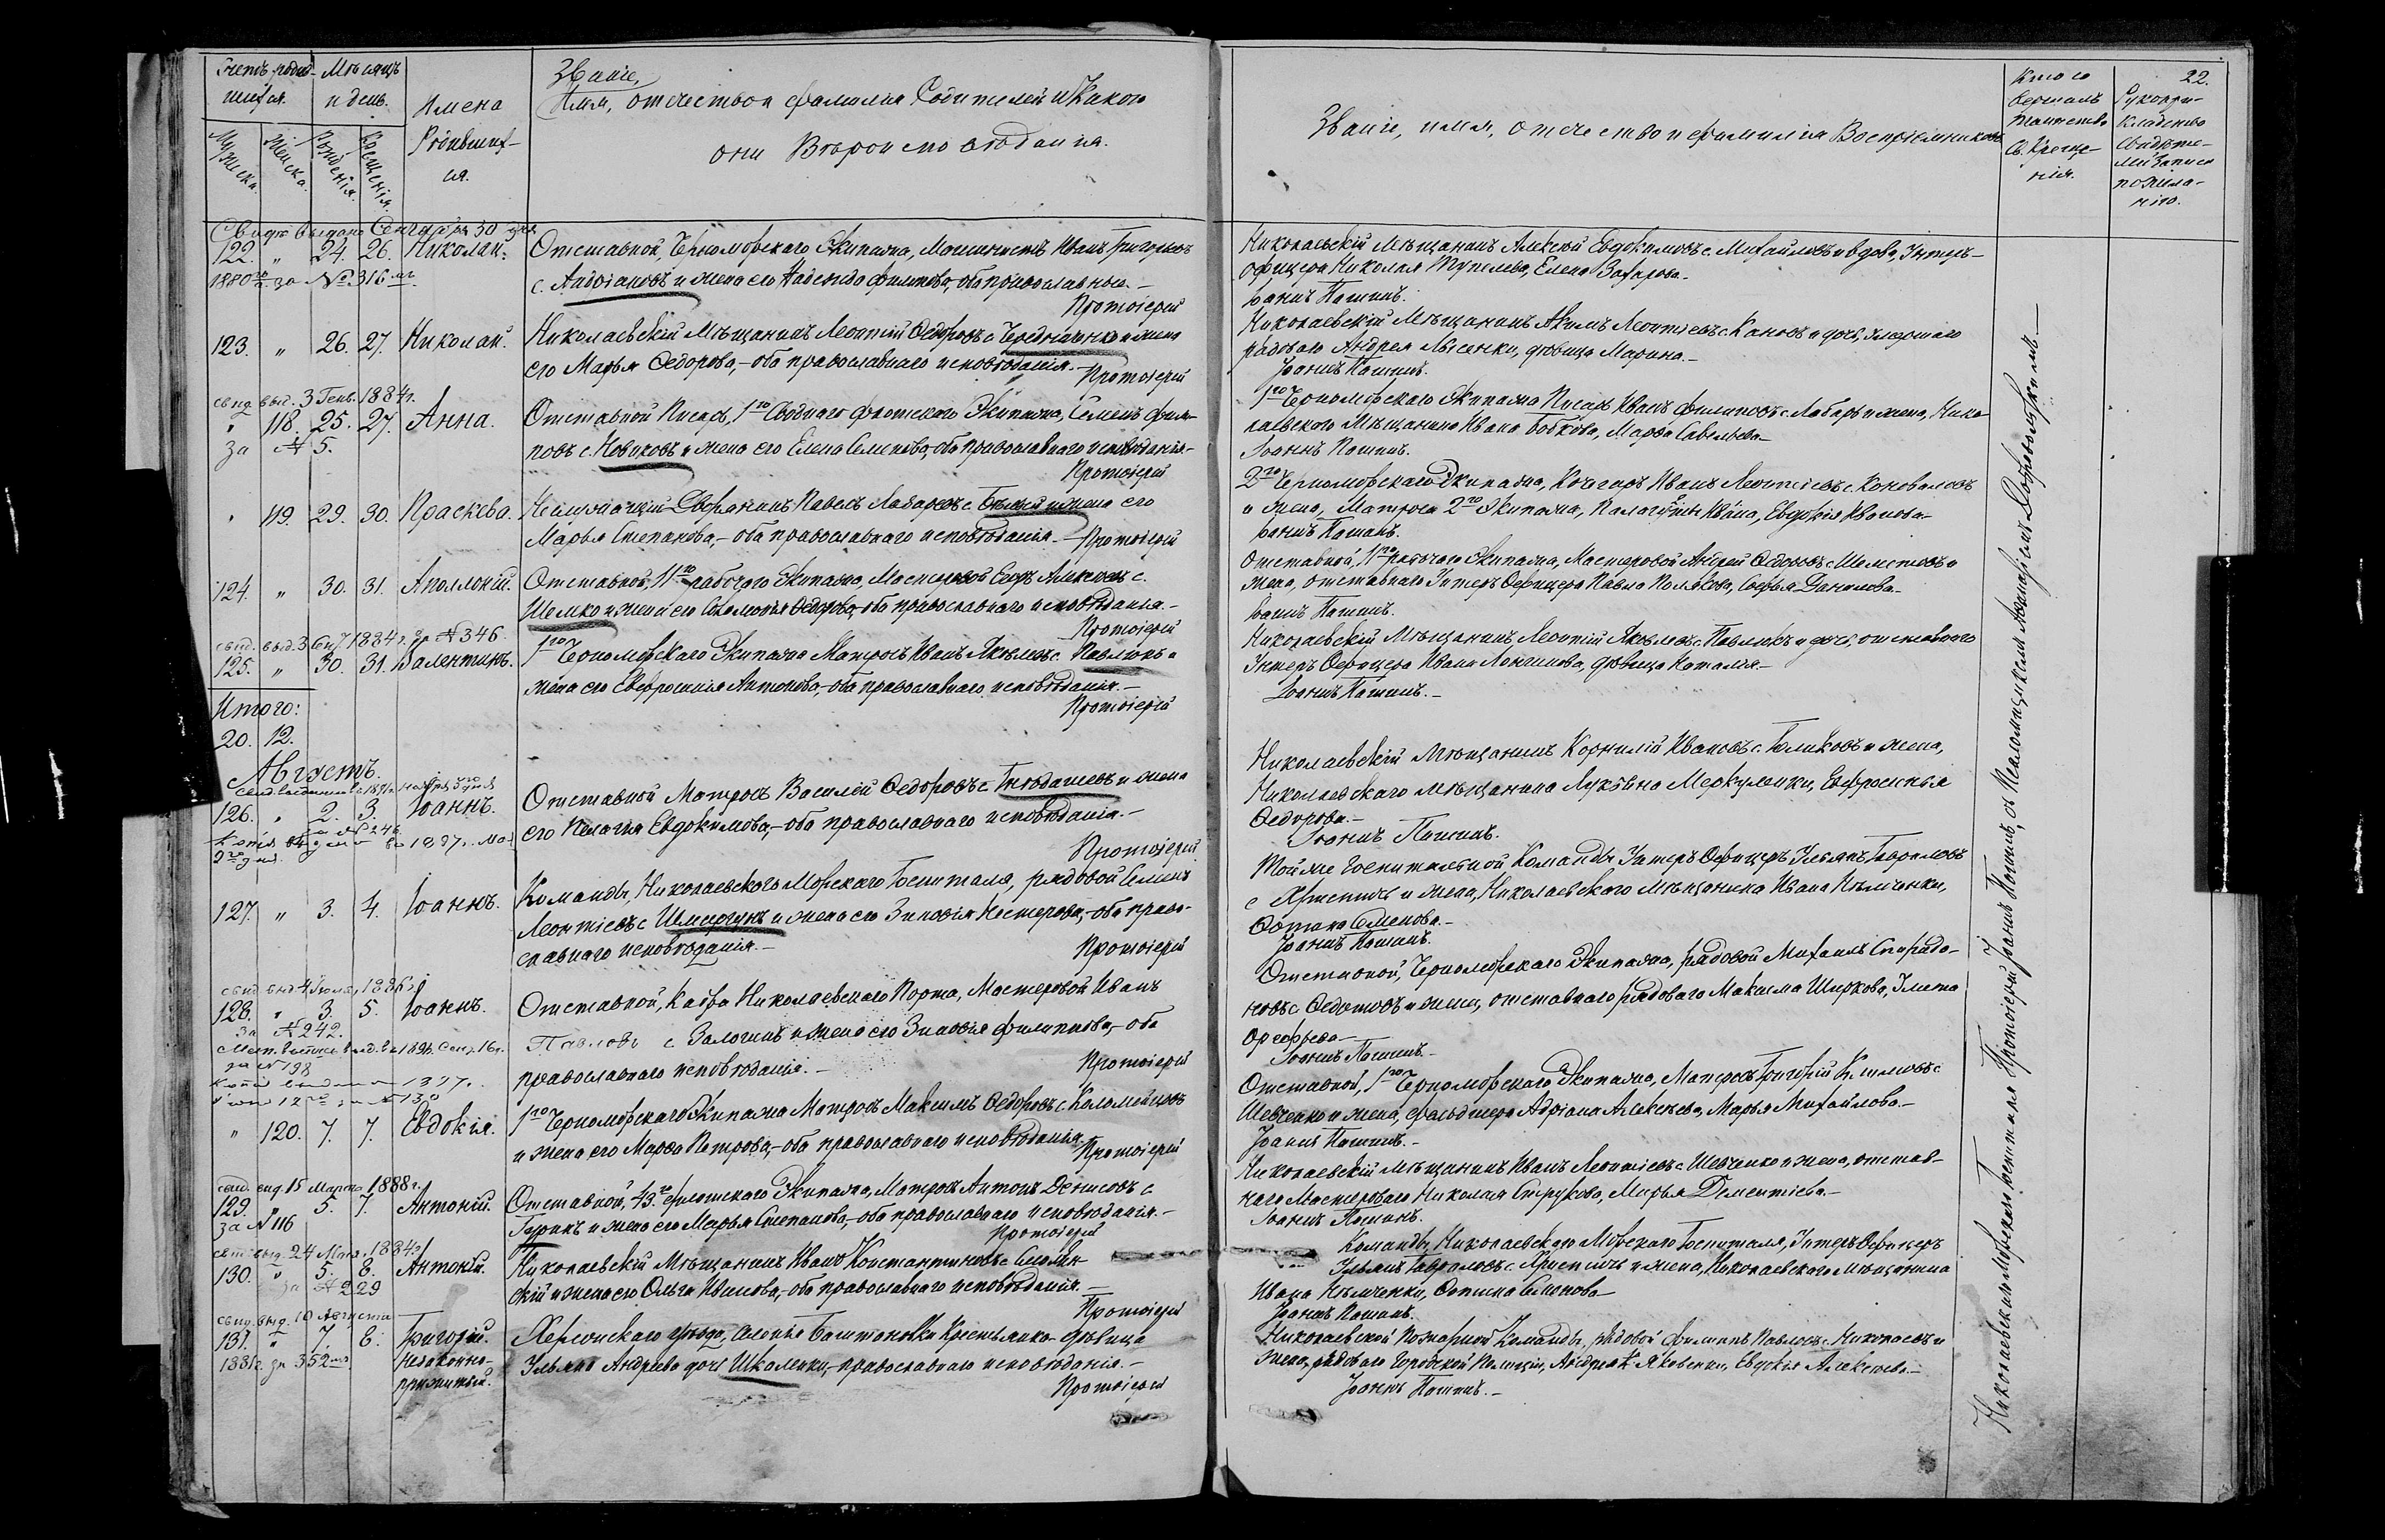 22.
Мѣсяцъ
и день.
Имена
Родившихся.
Званіе,
Имя, отчество и фамилія Родителей и Какого
они Вѣроисповѣданія.
Званіе, имя, отчество и фамилія Воспріемниковъ
Кто совершалъ
таинство
Св. Креще-
нія.
Рукопри-
кладство
Свидѣте-
лей записи
по жела-
нію.
Мужеска.
Женска.
Рожденія.
Крещенія.
Свидѣт. выдано Сентября 30 дня
122. " 24. 26. Николай.
1880 за № 316
Отставной, Черноморскаго Экипажа, Машинистъ Иванъ Григорьевъ
с. Андріановъ и жена его Надежда Филипова, оба православные.
Протоіерей
Николаевскій Мѣщанинъ Алексѣй Евдокимовъ с. Михайловъ и вдова, Унтеръ-
офицера Николая Тупелева, Елена Захарова.
Іоаннъ Пашинъ.
123. " 26. 27. Николай.
Николаевскій Мѣщанинъ Леонтій Ѳедоровъ с. Чередниченко и жена
его Марья Ѳедорова, оба православнаго исповѣданія.
Протоіерей
Николаевскій Мѣщанинъ Акимъ Леонтіевъ с. Кановъ и дочь, умершаго
рядоваго Андрея Лысенки, дѣвица Марина.
Іоаннъ Пашинъ.
свид. выд. 3 Генв. 1884 г.
" 118. 25. 27. Анна.
за № 5.
Отставной Писарь, 1го Своднаго флотскаго Экипажа, Семенъ Фили-
повъ с. Новиковъ и жена его Елена Семенова, оба православнаго исповѣданія.
Протоіерей
1го Черноморскаго Экипажа Писарь Иванъ Филиповъ с. Лабарь и жена, Нико-
лаевскаго Мѣщанина Ивана Бобкова, Марѳа Савельева.
Іоаннъ Пашинъ.
" 119. 29. 30. Праскева.
Дворянинъ Павелъ Лазаревъ с. Бѣлый и жена его
Марья Степанова, оба православнаго исповѣданія. Протоіерей
2го Черноморскаго Экипажа, Кочегаръ Иванъ Леонтіевъ с. Коноваловъ
и жена, Матроса 2го Экипажа, Ивана, Евдокія Иванова.
Іоаннъ Пашинъ.
124. " 30. 31. Аполлоній.
Отставной, 11го рабочаго Экипажа, Мастеровой Егоръ Алексѣевъ с.
Шелко и жена его Соломонія Ѳедорова, оба православнаго исповѣданія.
Протоіерей
Отставной, 11го рабочаго Экипажа, Мастеровой Андрей Ѳедоровъ с. Шелестовъ и
жена, отставнаго Унтеръ Офицера Павла Полякова, Софья Данилова.
Іоаннъ Пашинъ.
свид. выд. 3 Сен. 1884 г. за № 346.
125. " 30. 31. Валентинъ.
1го Черноморскаго Экипажа Матросъ Иванъ Яковлевъ с. Павлюкъ и
жена его Евфросинія Антонова, оба православнаго исповѣданія.
Протоіерей
Николаевскій Мѣщанинъ Леонтій Яковлевъ с. Павлюкъ и дочь, отставнаго
Унтеръ Офицера Ивана Лончикова, дѣвица Наталія.
Іоаннъ Пашинъ.
Итого:
20. 12.
Августъ.
126. " 2. 3. Іоаннъ.
Отставной Матросъ Василій Ѳедоровъ с. Гнѣдашевъ и жена
его Пелагія Евдокимова, оба православнаго исповѣданія.
Протоіерей
Николаевскій Мѣщанинъ Корнилій Ивановъ с. Голиковъ и жена,
Николаевскаго мѣщанина Лукьяна Меркуленки, Евфросинья
Ѳедорова.
Іоаннъ Пашинъ.
127. " 3. 4. Іоаннъ.
Команды, Николаевскаго Морскаго Госпиталя, рядовой Семенъ
Леонтіевъ с. Шмаргунъ и жена его Зиновія Нестерова, оба право-
славнаго исповѣданія.
Протоіерей
Той же Госпитальной Команды Унтеръ Офицеръ Ульянъ Гавриловъ
с. Христичъ и жена, Николаевскаго Мѣщанина Ивана Нѣмченки,
Фотина Семенова.
Іоаннъ Пашинъ.
свид. выд. 4 Іюля, 1886 г.
128. " 3. 5. Іоаннъ.
за № 242.
за № 198
Отставной, Кадра Николаевскаго Порта, Мастеровой Иванъ
Павловъ с. Залогинъ и жена его Зиновія Филиппова, оба
православнаго исповѣданія.
Протоіерей
Отставной, Черноморскаго Экипажа, рядовой Михаилъ Спиридо-
новъ с. Ѳедотовъ и жена, отставнаго рядоваго Максима Ширкова, Улита
Орефьева.
Іоаннъ Пашинъ.
" 120. 7. 7. Евдокія.
1го Черноморскаго Экипажа Матросъ Максимъ Ѳедоровъ с. Коломейцовъ
и жена его Марѳа Петрова, оба православнаго исповѣданія.
Протоіерей
Отставной, 1го Черноморскаго Экипажа, Матросъ Григорій Климовъ с.
Шевченко и жена, фельдшера Адріана Алексѣева, Марья Михайлова.
Іоаннъ Пашинъ.
свид. выд. 15 Марта 1888 г.
129. 5. 7. Антоній.
за № 116
Отставной, 43го флотскаго Экипажа, Матросъ Антонъ Денисовъ с.
Гурикъ и жена его Марья Степанова, оба православнаго исповѣданія.
Протоіерей
Николаевскій мѣщанинъ Иванъ Леонтіевъ с. Шевченко и жена, отстав-
наго Мастероваго Николая Струкова, Марья Дементіева.
Іоаннъ Пашинъ.
свид. выд. 24 Мая, 1884 г.
130. " 5. 8. Антоній.
за № 229
Николаевскій Мѣщанинъ Иванъ Константиновъ с.
скій и жена его Ольга Иванова, оба православнаго исповѣданія.
Протоіерей
Команды, Николаевскаго Морскаго Госпиталя, Унтеръ Офицеръ
Ульянъ Гавриловъ с. Христичъ и жена, Николаевскаго Мѣщанина
Ивана Нѣмченки, Фотина Семенова
Іоаннъ Пашинъ.
свид. выд. 10 Августа
131. " 7. 8. Григорій.
1881 г. за 352 Незаконно-
прижитый.
Херсонскаго уѣзда, селенія Баштановки Крестьянка дѣвица
Ульяна Андреева дочь Школенки, православнаго исповѣданія.
Протоіерей
Николаевской Пожарной Команды, рядовой Филипъ Павловъ с. Николаевъ и
жена, рядоваго Городской Полиціи, Андрея Яковенки, Евдокія Алексѣева.
Іоаннъ Пашинъ.
Николаевскаго Морскаго Госпиталя Протоіерей Іоаннъ Пашинъ, съ Псаломщикомъ